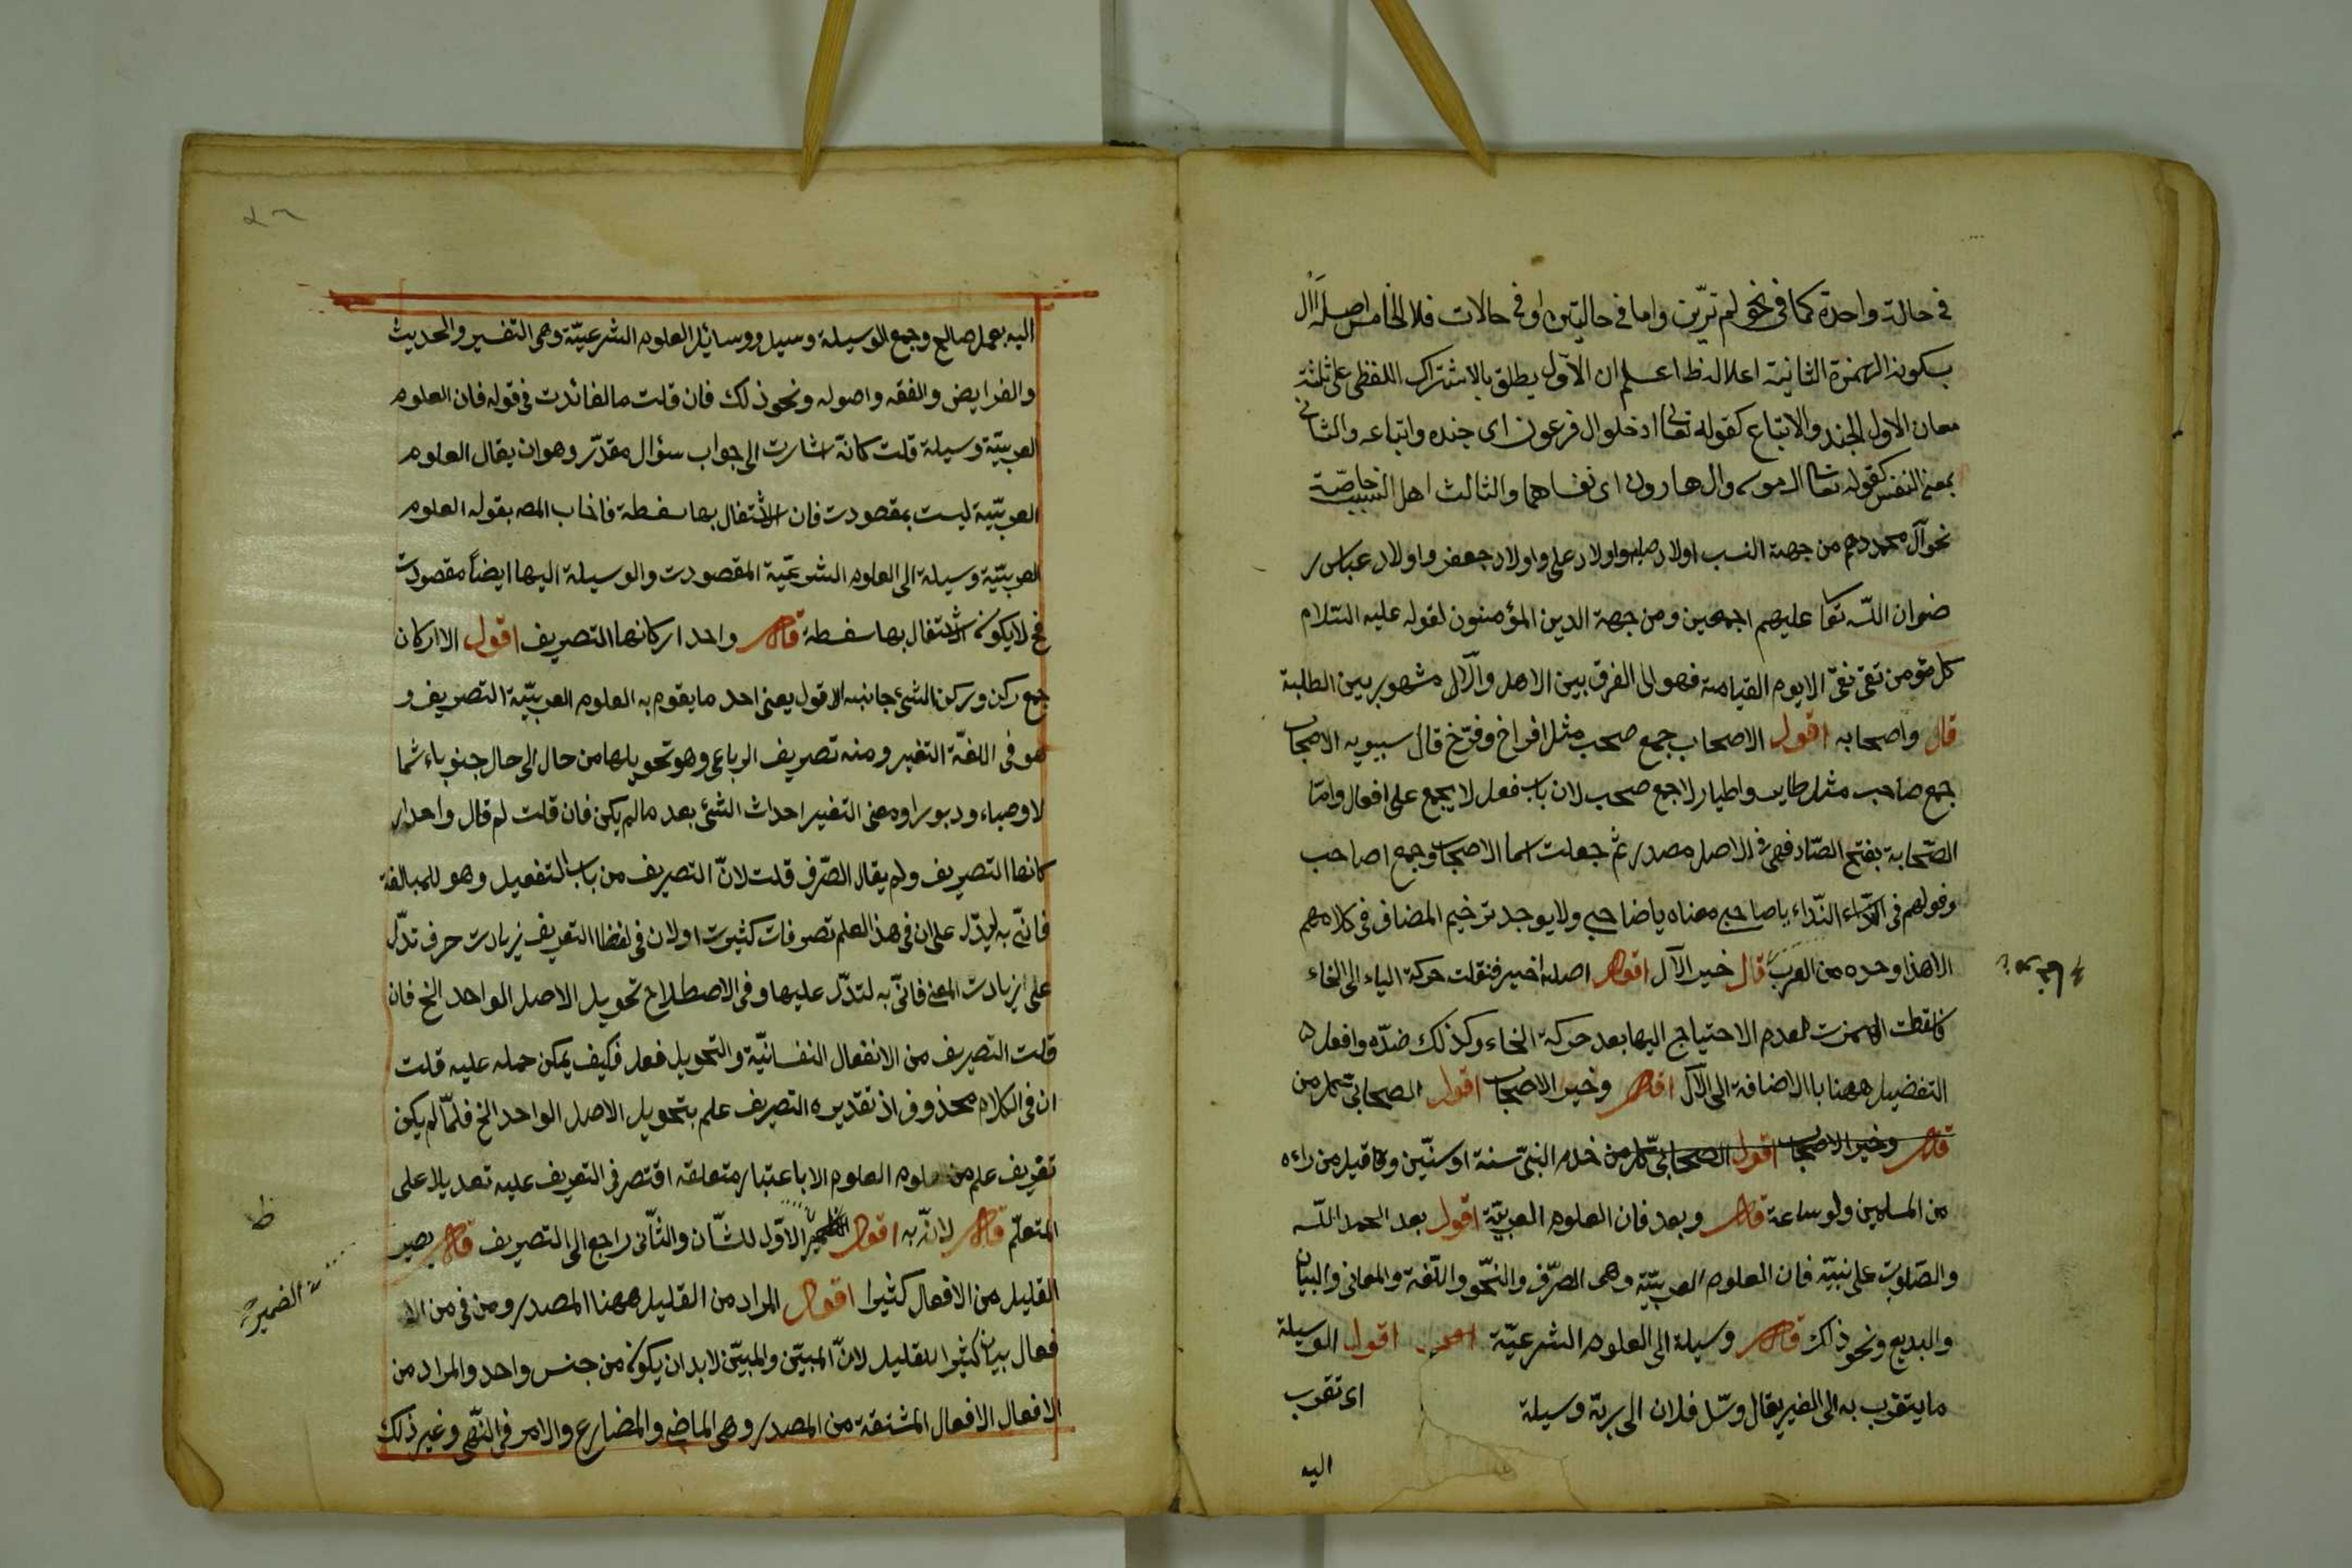 في حالة واحدة كما في نحو لم ترين واما في حاليتن او في حالات فلا الخامس اصله أأل
بسكون الهمزة الثانية اعلاله ظ اعلم ان الآول يطلق بالاشتراك اللفظى على ثلثة
معان الاول الجند والاتباع كقوله تعالى ادخلوا ال فرعون اى جنده واتباعه والثانى
بمعنى النفس كقوله تعالى ال موسى وال هارون اى نفساهما والثالث اهل البيت خاصّة
نحو آل محمد دم من جهة النسب اولاد علي واولاد جعفر واولاد عباس ر
ضوان اللّه تعا عليهم اجمعين ومن جهة الدين المؤمنون لقوله عليه السّلام
كل مؤمن تقى نقىّ الا يوم القيامة فهو الى الفرق بين الاهل والآل مشهور بين الطلبة
قال واصحابه اقول الاصحاب جمع صحب مثل افراخ وفرّخ قال سيبويه الاصحاب
جمع صاحب مثل طاير واطيار لا جمع صحب لان باب فعل لا يجمع على افعال وامّا
الصّحابة بفتح الصّاد فهى في الاصل مصدر ثم جعلت اسما الاصحاب وجمع اصاحب
وقولهم في النّداء يا صاحبى معناه يا صاحبى ولا يوجد ترخيم المضاف في كلامهم
الا هذا وحده من العرب قال خير الآل اقول اصله اخير فنقلت حركة الياء الى الخاء
فاسقطت الهمزت لعدم الاحتياج اليها بعد حركة الخاء وكذلك ضدّه وافعل
التفضيل ههنا با الاضافة الى الآل اقول وخير الاصحاب اقول الصحابى كل من
قال وخير الاصحاب اقول الصحابىّ كل من خدم النبىّ سنة او سنتين وقيل من راءه
من المسلمين ولو ساعة قال وبعد فان العلوم العربيّة اقول بعد الحمد اللّه
والصّلوت على نبيّه فان العلوم العربيّة وهى الصّرف والنّحو واللّغة والمعانى والبيان
والبديع ونحو ذلك قال وسيلة الى العلوم الشرعيّة اقول الوسيلة
ما يتقرب به الى الغير يقال وسّل فلان الى ربّه وسيلة اى تقرب
اليه
اليه بعمل صالح وجمع الوسيلة وسيل ووسائل العلوم الشرعيّة وهى التفسير والحديث
والفرايض والفقه واصوله ونحو ذلك فان قلت ما الفائدت فى قوله فان العلوم
العربيّة وسيلة قلت كانّه اشارت الى جواب سؤال مقدّر وهو ان يقال العلوم
العربيّة ليست بمقصودت فان الاشتغال بها سفسطة فاجاب المصه بقوله العلوم
العربيّة وسيلة الى العلوم الشرعيّة المقصودت والوسيلة اليها ايضاً مقصودت
فح لا يكون الاشتغال بها سفسطة قال واحد اركانها التصريف اقول الا اركان
جمع ركن وركن الشئ جانبه الاقول يعنى احد ما يقوم به العلوم العربيّة التصريف و
هو فى اللغّة التغير ومنه تصريف الرياعى وهو تحويلها من حال الى حال جنوباء شما
لا وصباء ودبورا ومعنى التغير احداث الشئ بعد ما لم يكن فان قلت لم قال واحد ار
كانها التصريف ولم يقال الصّرف قلت لانّ التصريف من باب التفعيل وهو للمبالغة
فانّى به ليدّل على ان فى هذ العلم تصرفات كثيرت اولان فى لفظ التصريف زيادت حرف تدّل
على زيادت المعنى فانّى به لتدّل عليها وفى الاصطلاح تحويل الاصل الواحد الخ فان
قلت التصريف من الانفعال النفسانيّة والتحويل فعل فكيف يمكن حمله عليه قلت
ان فى الكلام محذوف اذ تقديره التصريف علم بتحويل الاصل الواحد الخ فلمّا لم يكن
تعريف علم من علوم العلوم الا باعتبار متعلقه اقتصر فى التعريف عليه تعديلا على
المتعلّم قال لانّه به اقول الضمير الاوّل للشّان والثّانى راجع الى التصريف قال يصير
القليل من الافعال كثيرا اقول المراد من القليل ههنا المصدر ومن فى من الا
فعال بيان كثيرا للقليل لانّ المبيّن والمبيّن لا بد ان يكون من جنس واحد والمراد من
الافعال الافعال المشتقة من المصدر وهى الماضى والمضارع والامر فى النّهى وغير ذلك
ظ
الضمير